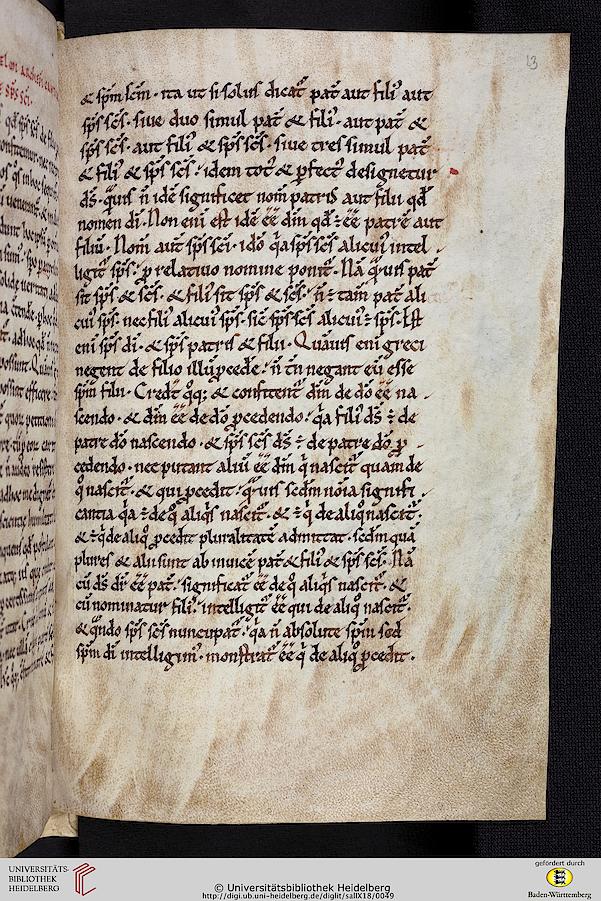 13
& sp̄m sc̄m · ita ut si solus dicat̃ pat̃ aut fili᷒ aut
sp̄s sc̄s · siue duo simul pat̃ & fili᷒ · aut pat̃ &
sp̄s sc̄s · aut fili᷒ & sp̄s sc̄s · siue tres simul pat̃
& fili᷒ & sp̄s sc̄s · idem tot᷒ & perfect᷒ designetur
ds̄ · quis n̄ idē significet nom̄ patris aut filii qd̄
nomen di̅ · Non eni̅ est idē ēē dm̄ qd̄ ÷ ēē patrē aut
filiū · Nom̄ aut̃ sp̄s sc̄i · ido̅ q̇a sp̄s sc̄s alicui᷒ intel
ligit̃ sp̄s · ꝓ relatiuo nomine ponit̃ · Nā q̃uis pat̃
sit sp̄s & sc̄s · & fili᷒ sit sp̄s & sc̄s · n̄ ÷ tam̄ pat̃ ali
cui᷒ sp̄s · nec fili᷒ alicui᷒ sp̄s · sic̄ sp̄s sc̄s alicui᷒ ÷ sp̄s · Est
eni̅ sp̄s di̅ · & sp̄s patris & filii · Quāuis eni̅ greci
negent de filio illū ꝓcede᷒ · n̄ tn̄ negant eū esse
sp̄m filii · Credt̃ q̊q; & confitent᷒ dm̄ de do̅ ēē na
scendo · & dm̄ ēē de do̅ ꝓcedendo · q̇a fili᷒ ds̄ ÷ de
patre do̅ nascendo · & sp̄s sc̄s ds̄ ÷ de patre do̅ ꝓ
cedendo · nec putant aliū ēē dm̄ q̇ nascit̃ quam de
q̊ nascit̃ · & qui ꝓcedit · q̃uis scd̄m noīa signifi
cantia q̇a ÷ de q̊ aliq̇s nascit̃ · & ÷ q̇ de aliq̊ nascit̃ ·
& ÷ q̇ de aliq̊ ꝓcedit pluralitatē admittat · scd̄m quā
plures & alii sunt ab inuicē pat̃ & fili᷒ & sp̄s sc̄s · Nā
cū ds̄ dr̄ ēē pat̃ · significat̃ ēē de q̊ aliq̇s nascit̃ · &
cū nominatur fili᷒ · intelligit̃ ēē qui de aliq̊ nascit̃ ·
& q̃ndo sp̄s sc̄s nuncupat̃ · q̇a n̄ absolute sp̄m sed
sp̄m di̅ intelligim᷒ · monstrat̃ ēē q̇ de aliq̊ ꝓcedit ·
UNIVERSITÄTS-
BIBLIOTHEK
HEIDELBERG
© Universitätsbibliothek Heidelberg
http://digi.ub.uni-heidelberg.de/diglit/salIX18/0049
gefördert durch
Baden-Württemberg